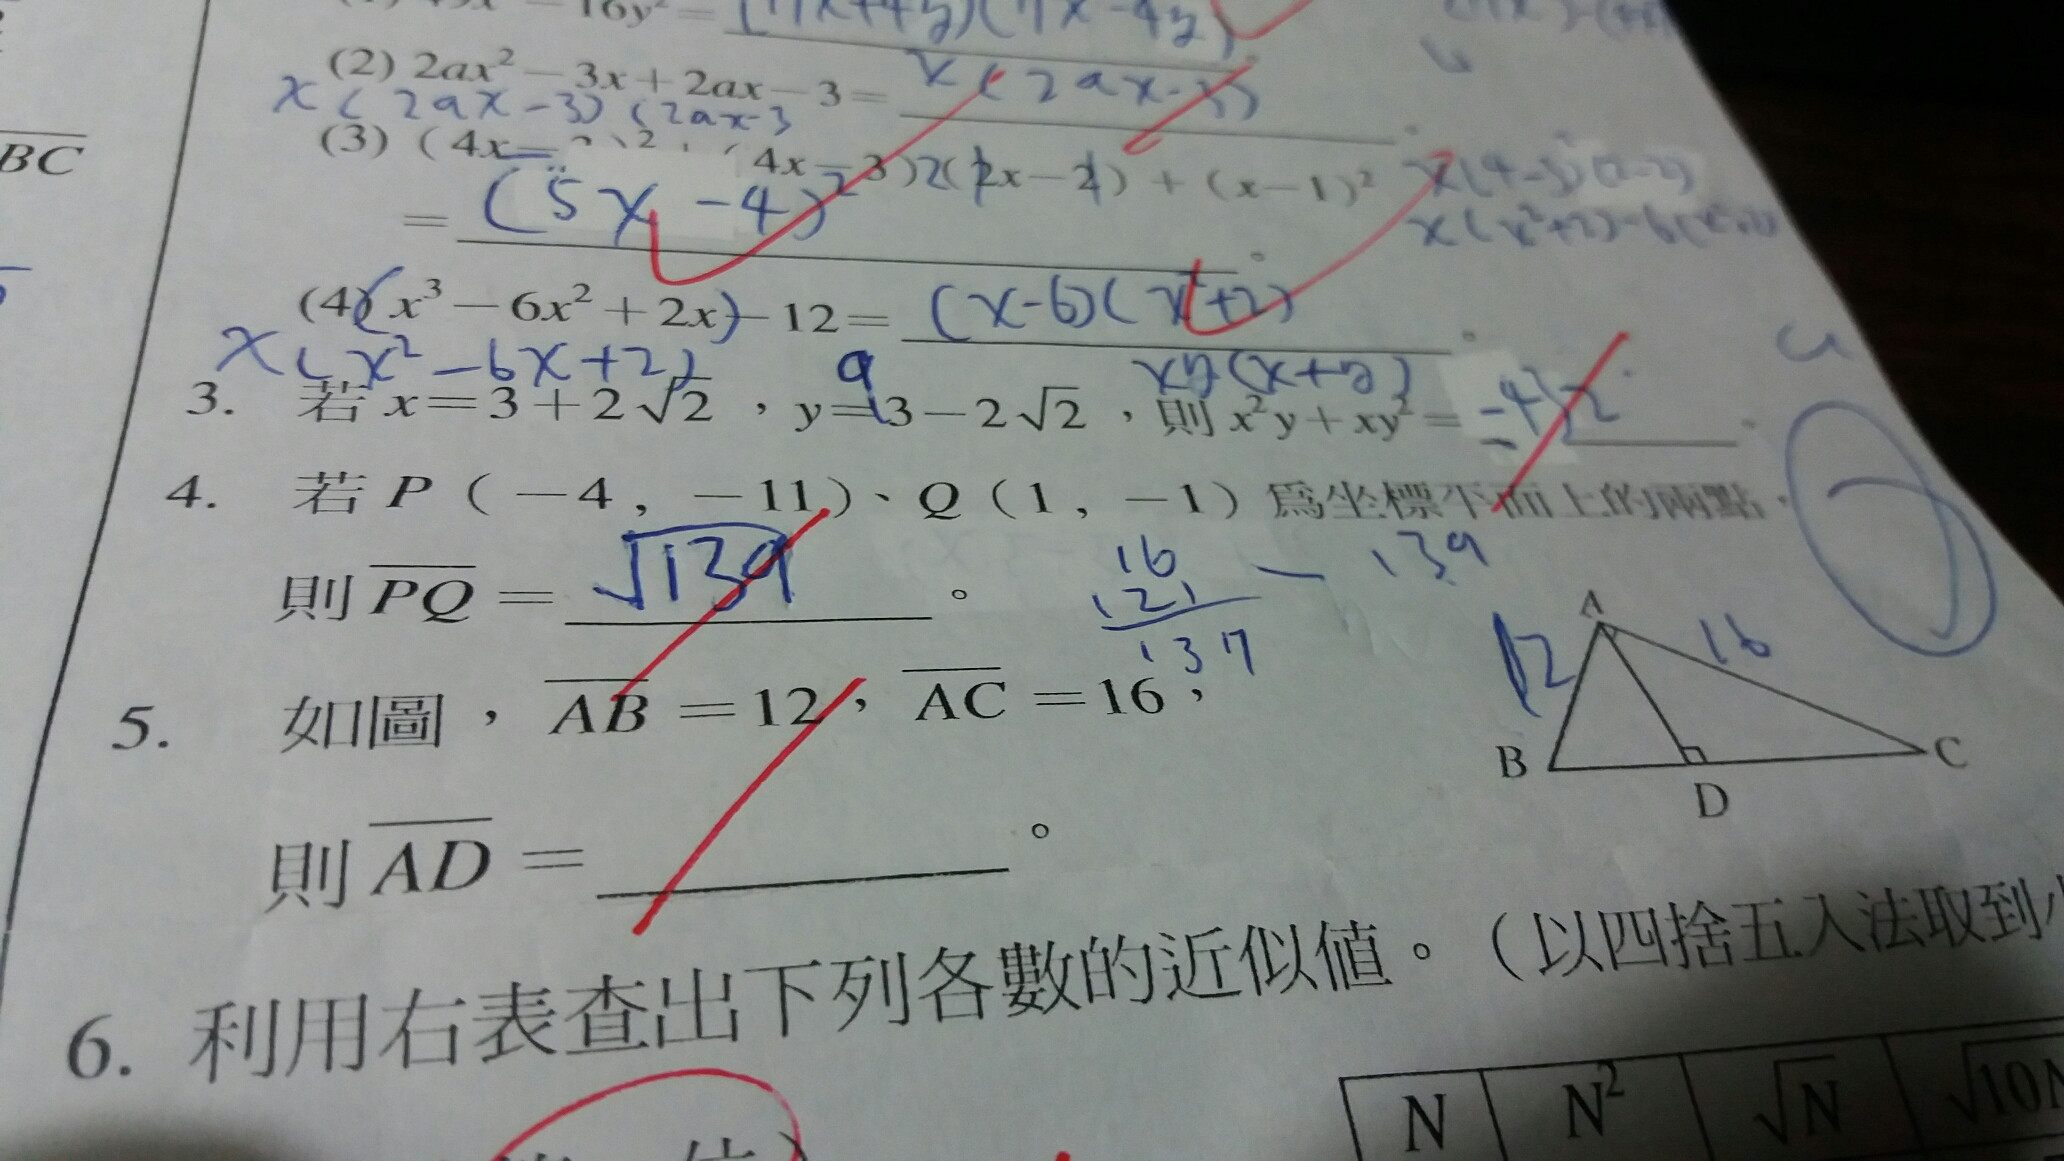 16y² = (7x+4y)(7x-4y)
(2) 2ax² - 3x + 2ax - 3 = x(2ax-3)
x(2ax-3)(2ax-3
(3) (4x- )² + (4x-3)2(2x-2) + (x-1)²
= (5x-4)²
x(x²+2)-6(x²+2)
(4) (x³ - 6x² + 2x) - 12 = (x-6)(x²+2)
x(x²-6x+2)
xy(x+y)
3. 若 x=3+2√2 , y=3-2√2 , 則 x²y+xy² =
4. 若 P ( -4 , -11 )、Q ( 1 , -1 ) 為坐標平面上的兩點,
則 PQ = √139 。
16
121
137
139
5. 如圖 , AB = 12 , AC = 16 ,
則 AD = 。
A
12
16
B
C
D
6. 利用右表查出下列各數的近似值。(以四捨五入法取到小
N N² √N √10N
BC